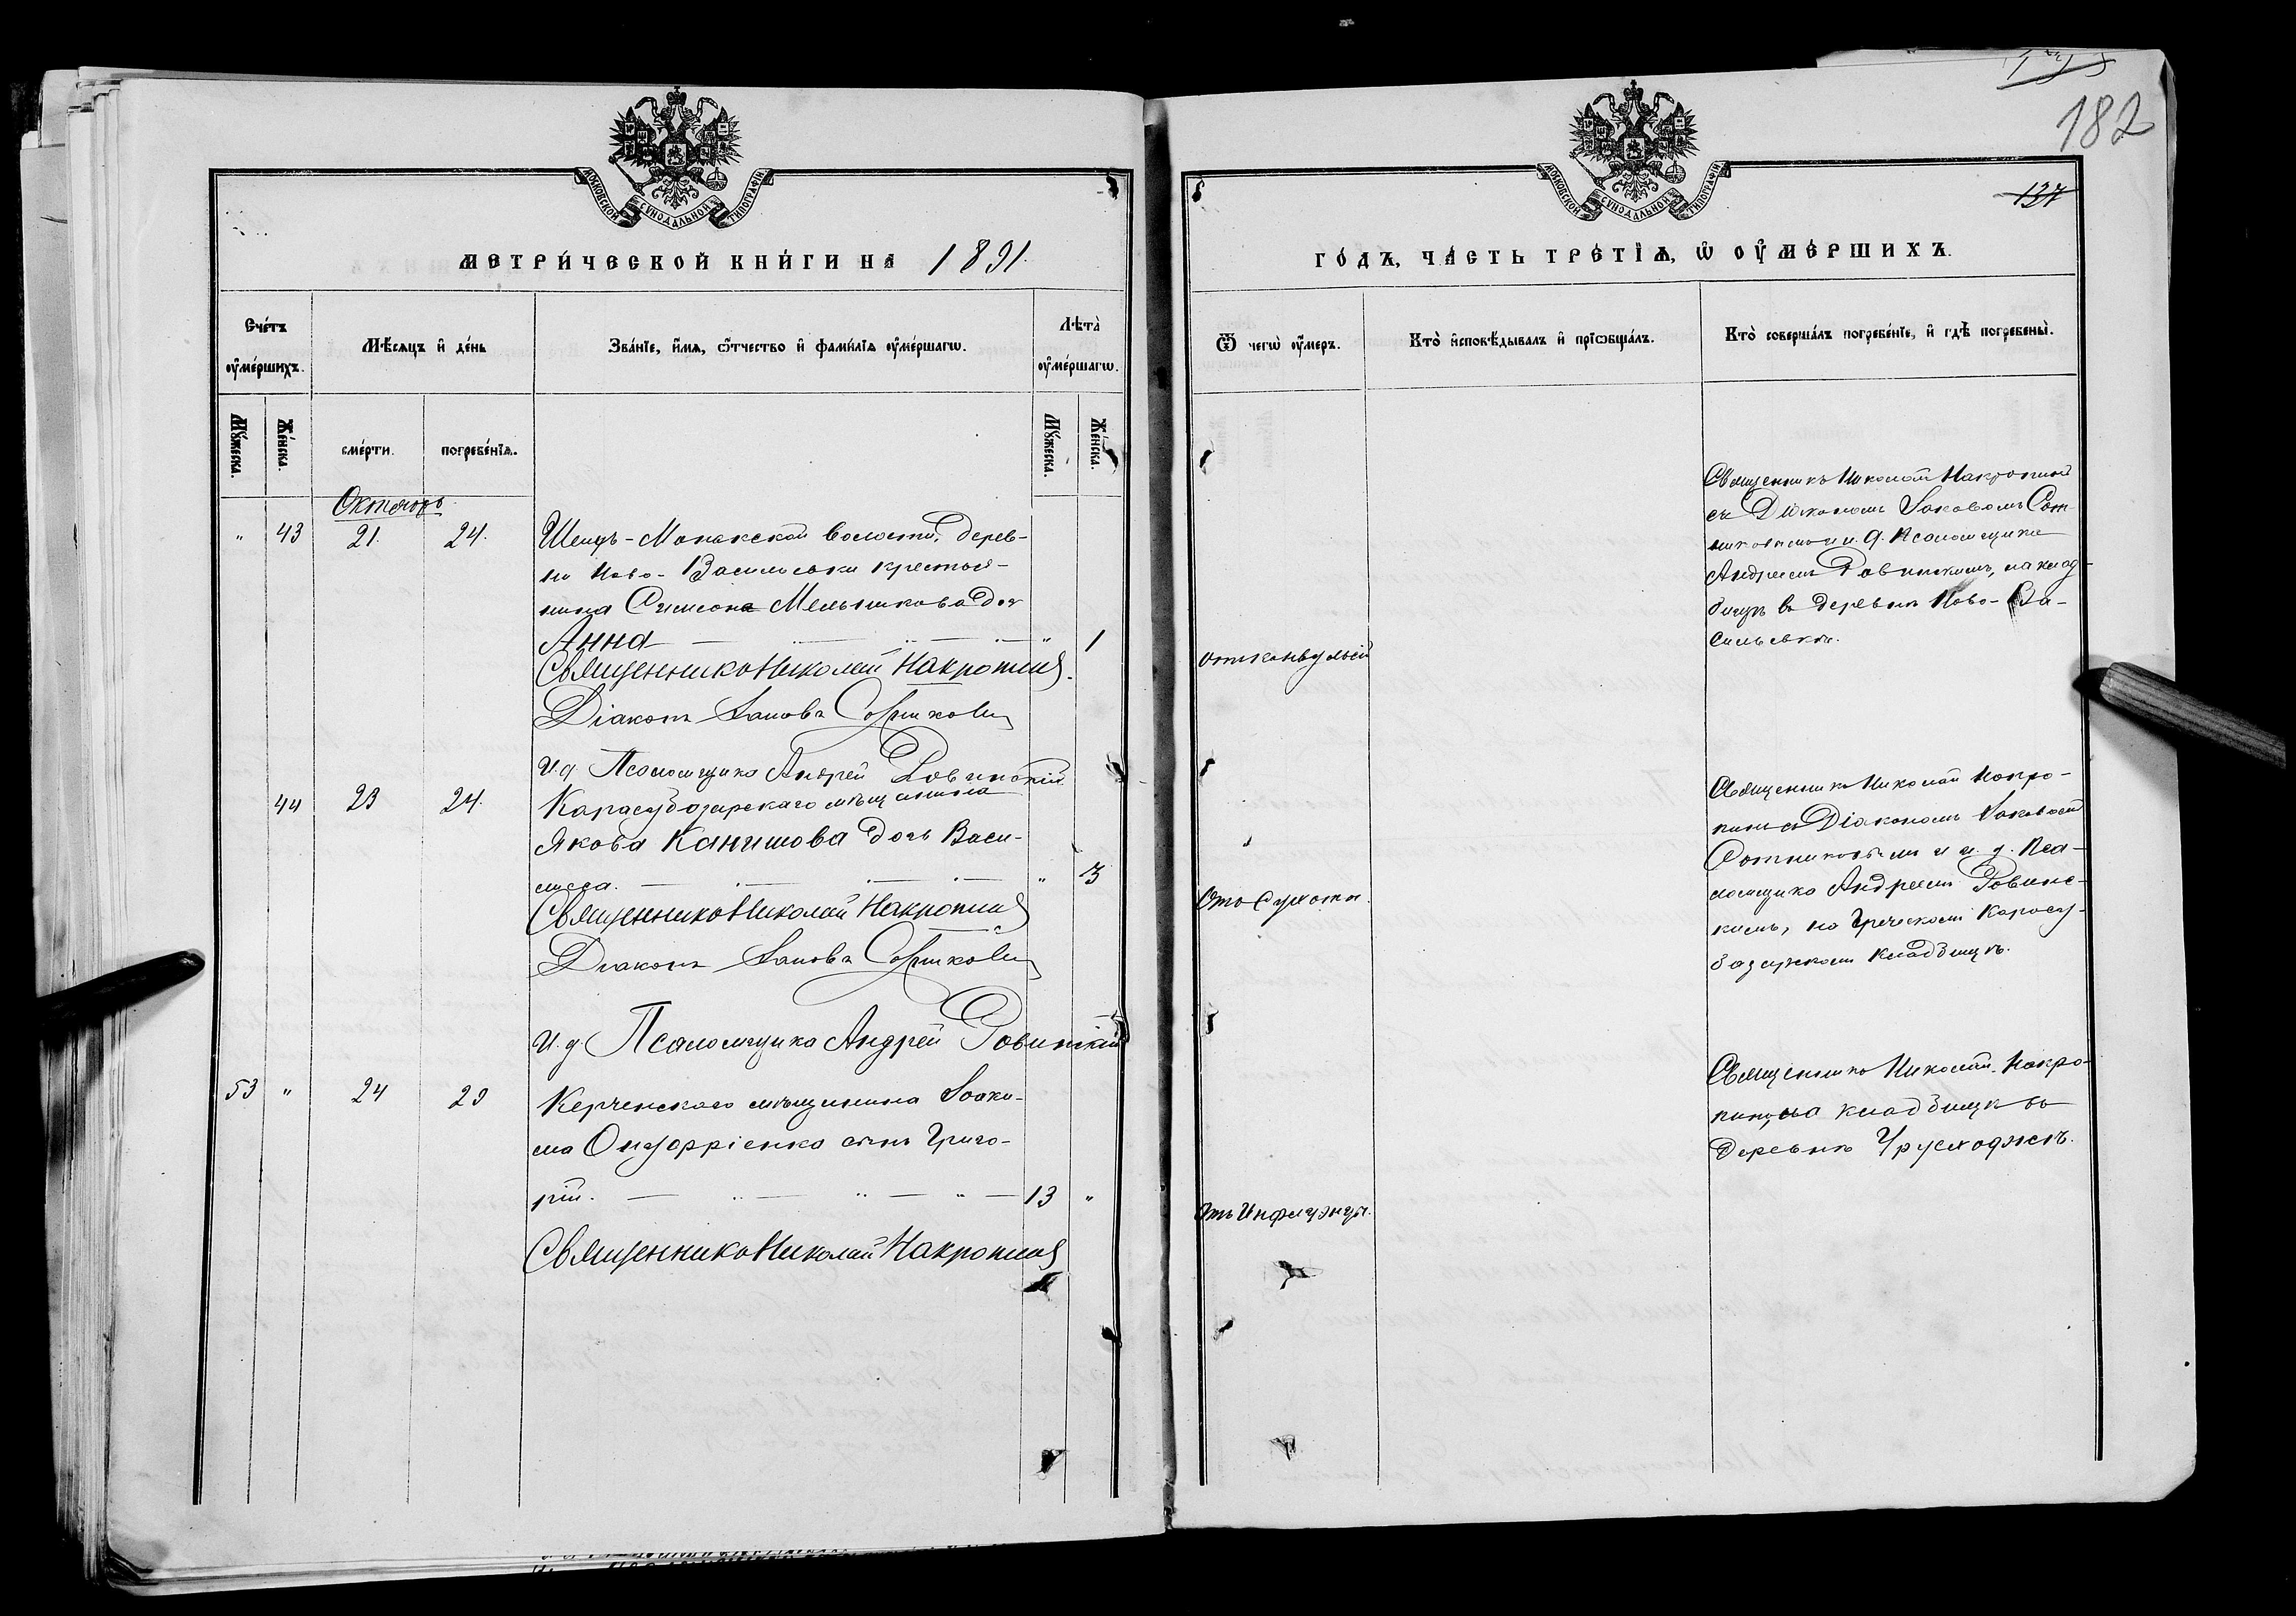 182
137
МОСКОВСКОЙ СѴНОДАЛЬНОЙ ТИПОГРАФІИ
МЕТРИ́ЧЕСКОЙ КНИ́ГИ НА 1891.
Сче́тъ ᲂу҆ме́ршихъ.
Мѣ́сяцъ и҆ де́нь
Зва́нїе, и҆́мя, ѻ҆́тчество и҆ фами́лїя ᲂу҆ме́ршагѡ.
Лѣ́та ᲂу҆ме́ршагѡ.
Мꙋ́жеска.
Же́нска.
сме́рти.
погребе́нїѧ.
Мꙋ́жеска.
Же́нска.
Октябрь
" 43 21. 24. Шеихъ-Монакской волости, дерев-
ни Ново-Васильевки крестья-
нина Симеона Мельникова доч
Анна " 1
Священникъ Николай Накропинъ.
Діаконъ Іаковъ Сотниковъ
И. д. Псаломщика Андрей Ровинскій
44 23 24. Карасубазарскаго мѣщанина
Якова Канишова дочь Васи-
лисса. " 3
Священникъ Николай Накропинъ
Діаконъ Іаковъ Сотниковъ
И. д. Псаломщика Андрей Ровинскій
53 " 24 29 Керченскаго мѣщанина Іоаки-
ма Онуфріенко сынъ Григо-
рій. 13 "
Священникъ Николай Накропинъ
МОСКОВСКОЙ СѴНОДАЛЬНОЙ ТИПОГРАФІИ
ГО́ДЪ, ЧА́СТЬ ТРЕ́ТЇѦ, Ѡ҆ ОУ҆МЕ́РШИХЪ.
Ѿ чегѡ̀ ᲂу҆́меръ.
Кто̀ и҆сповѣ́дывалъ и҆ прїѡбща́лъ.
Кто̀ соверша́лъ погребе́нїе, и҆ гдѣ̀ погребены̀.
Священникъ Николай Накропинъ
съ Діакономъ Іаковомъ Сот-
никовымъ и и. д. Псаломщика
Андреемъ Ровинскимъ, на клад-
бищѣ въ деревнѣ Ново-Ва-
сильевкѣ.
отъ конвульсій
Священникъ Николай Накро-
пинъ съ Діакономъ Іаковомъ
Сотниковымъ и и. д. Пса-
ломщика Андреемъ Ровинс-
кимъ, на Греческомъ Карасу-
базарскомъ кладбищѣ.
Отъ сухотки.
Священникъ Николай Накро-
пинъ, на кладбищѣ въ
деревнѣ Урусходжѣ.
Отъ Инфлуэнцы.